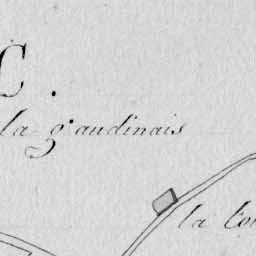 C.
la gaudinais
la